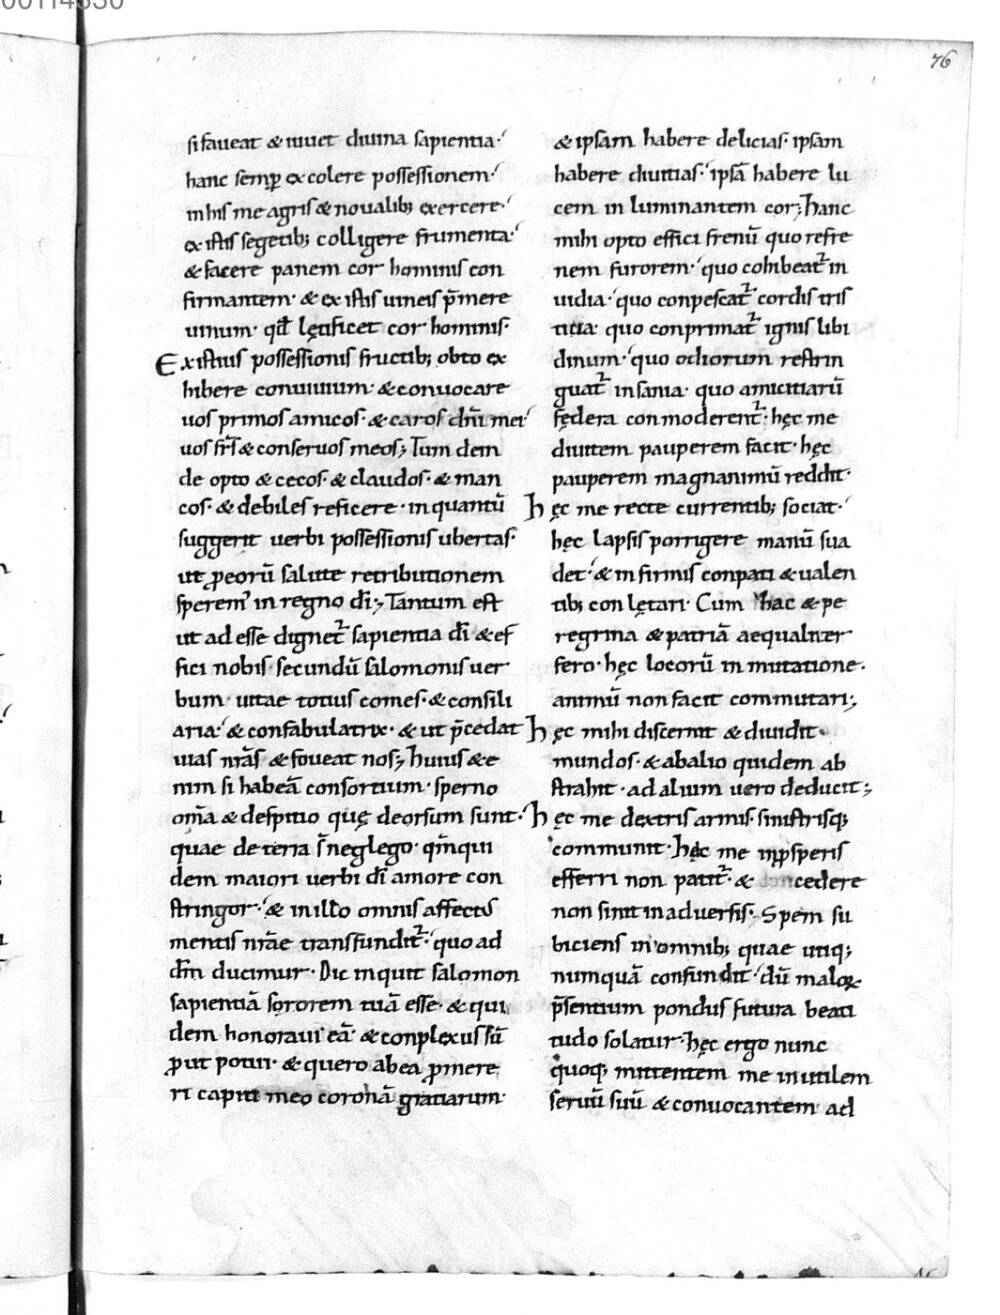 00114330
76
si faueat & iuuet diuina sapientia·
hanc semp̲ excolere possessionem·
in his me agris & noualib; exercere·
ex istis segetib; colligere frumenta·
& facere panem cor hominis con
firmantem· & ex istis uineis p̄mere
uinum· qđ lętificet cor hominis·
Ex istius possessionis fructib; obto ex
hibere conuiuium· & conuocare
uos primos amicos· & caros dn̄i mei·
uos fr̄s & conseruos meos; Tum dein
de opto & cecos· & claudos· & man
cos· & debiles reficere· inquantū
suggerit uerbi possessionis ubertas·
ut ꝓ eorū salute retributionem
sperem in regno dī; Tantum est
ut adesse dignet᷑ sapientia dī & ef
fici nobis· secundū salomonis uer
bum· uitae totius comes· & consili
aria· & confabulatrix· & ut p̄cedat
uias nr̄as & foueat nos; huius & e
nim si habeā consortium· sperno
om̄a & despitio quę deorsum sunt·
quae deteria s̄ neglego· qm̄ qui
dem maiori uerbi dī amore con
stringor· & in illo omnis affectus
mentis nr̄ae transfundit᷑· quo ad
dm̄ ducimur· Dic inquit salomon
sapientiā sororem tuā esse· & qui
dem honoraui eā· & conplexus sū
ꝓut potui· & quero ab ea ꝓmere
ri capiti meo coronā gratiarum·
& ipsam habere delicias· ipsam
habere diuitias· ipsā habere lu
cem inluminantem cor; hanc
mihi opto effici frenū quo refre
nem furorem· quo cohibeat᷑ in
uidia· quo conpescat᷑ cordis tris
titia· quo conprimat᷑ ignis libi
dinum· quo odiorum restrin
guat᷑ insania· quo amicitiarū
fędera conmoderent᷑· hęc me
diuitem pauperem facit· hęc
pauperem magnanimū reddit·
hęc me recte currentib; sociat·
hęc lapsis porrigere manū sua
det· & infirmis conpati & ualen
tib; conlętari· Cum hac & pe
regrina & patriā aequaliter
fero· hęc locorū inmutatione·
animū non facit commutari;
hęc mihi discernit & diuidit·
mundos· & ab alio quidem ab
strahit· ad alium uero deducit;
hęc me dextris armis· sinistrisq;
communit· hęc me in ꝓsperis
efferri non patit᷑· & cedere
non sinit in aduersis· Spem su
biciens in omnib; quae utiq;
numquā confundit· dū maloꝝ
p̄sentium pondus futura beati
tudo solatur· hęc ergo nunc
quoq; mittentem me inutilem
seruū suū & conuocantem ad